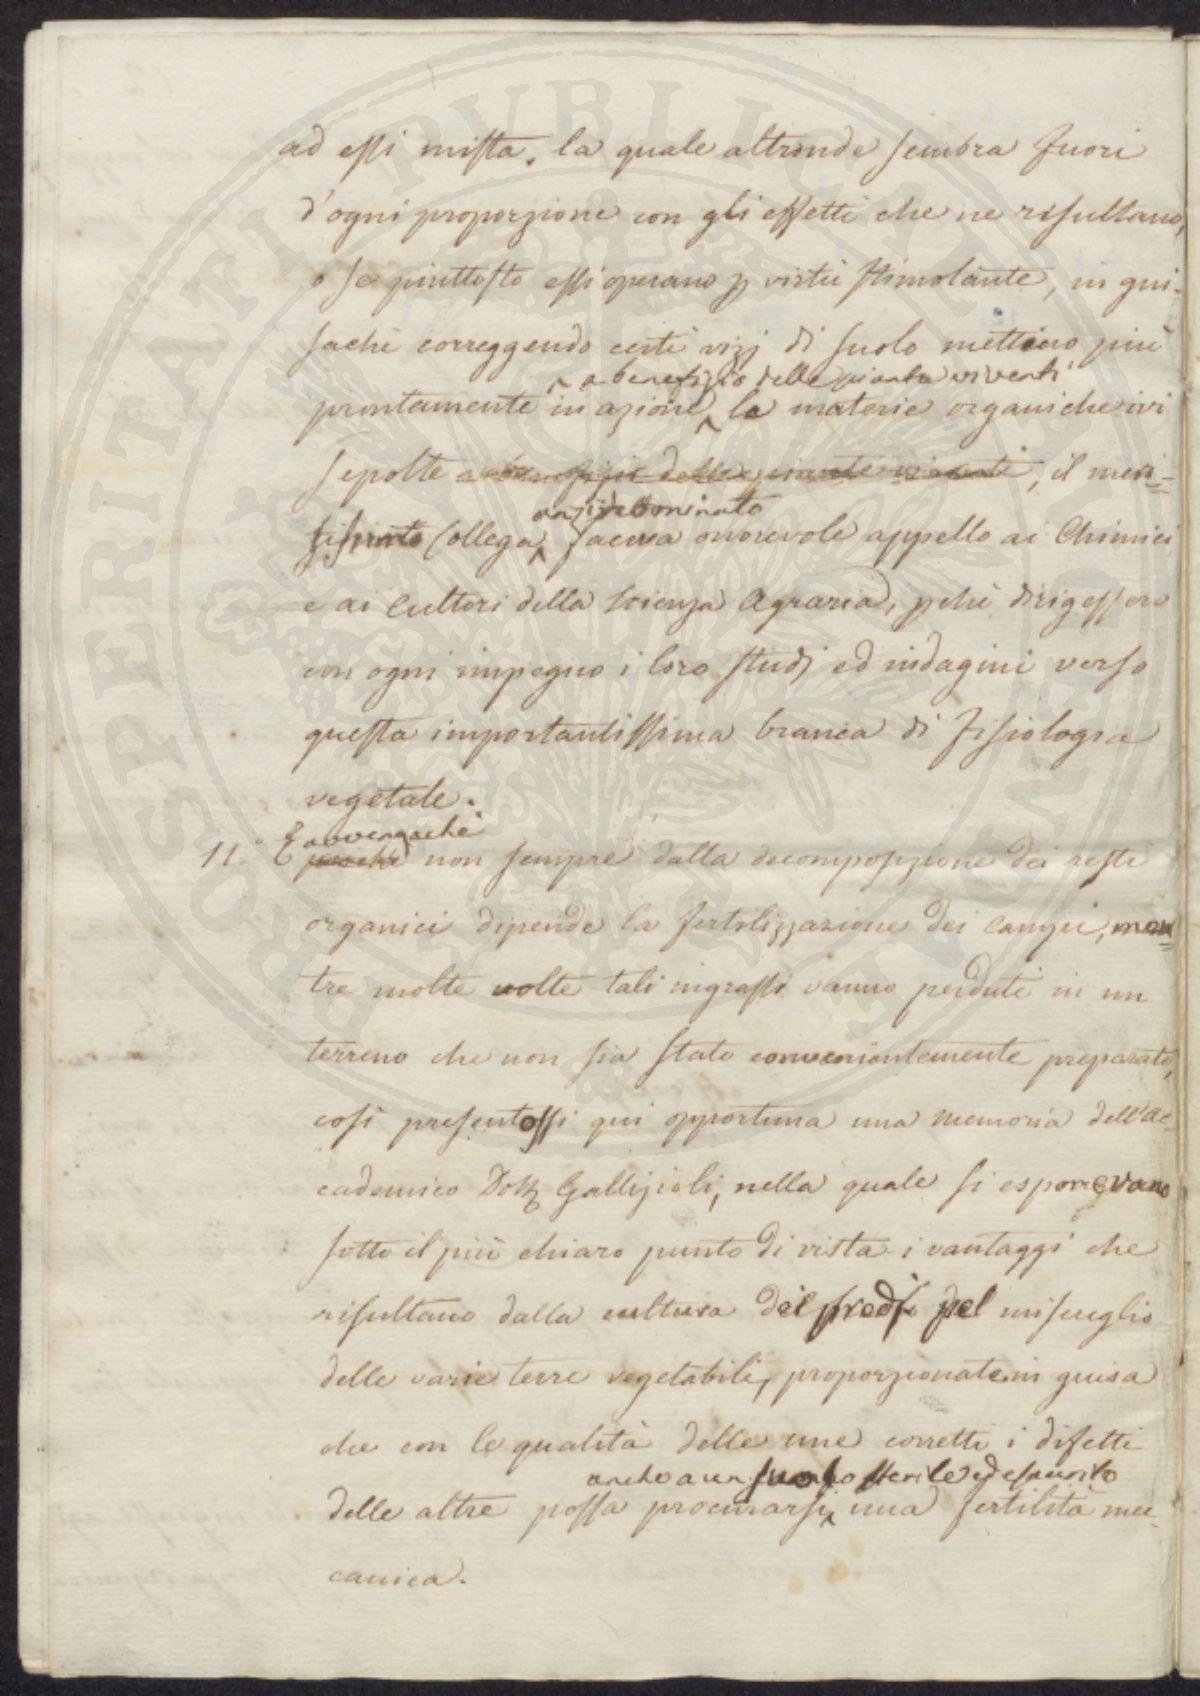 ad essi mista, la quale altronde sembra fuori
d'ogni proporzione con gli effetti che ne risultano,
o se piuttosto essi operano p virtù stimolante, in gui-
sachè correggendo certi vizj di suolo mettino più
a benefizio delle piante viventi
prontamente in azione le materie organiche ivi
sepolte a benefizio delle piante viventi, il meri-
anzidenominato
Collega, faceva onorevole appello ai Chimici
e ai Cultori della Scienza Agraria, pchè dirigessero
con ogni impegno i loro studj ed indagini verso
questa importantissima branca di Fisiologia
vegetale.
avvengachè
11.° E perchè non sempre dalla decomposizione dei resti
organici dipende la fertilizzazione dei campi, men-
tre molte volte tali ingrassi vanno perduti in un
terreno che non sia stato convenientemente preparato,
così presentossi qui opportuna una memoria dell'Ac-
cademico Dott Gallizioli, nella quale si esponevano
sotto il più chiaro punto di vista i vantaggi che
risultano dalla cultura dei predj pel miscuglio
delle varie terre vegetabili, proporzionate in guisa
che con le qualità delle une corretti i difetti
anche a un suolo sterile ed esaurito
delle altre possa procurarsi una fertilità mec-
canica.
PROSPERITATI PUBLICAE